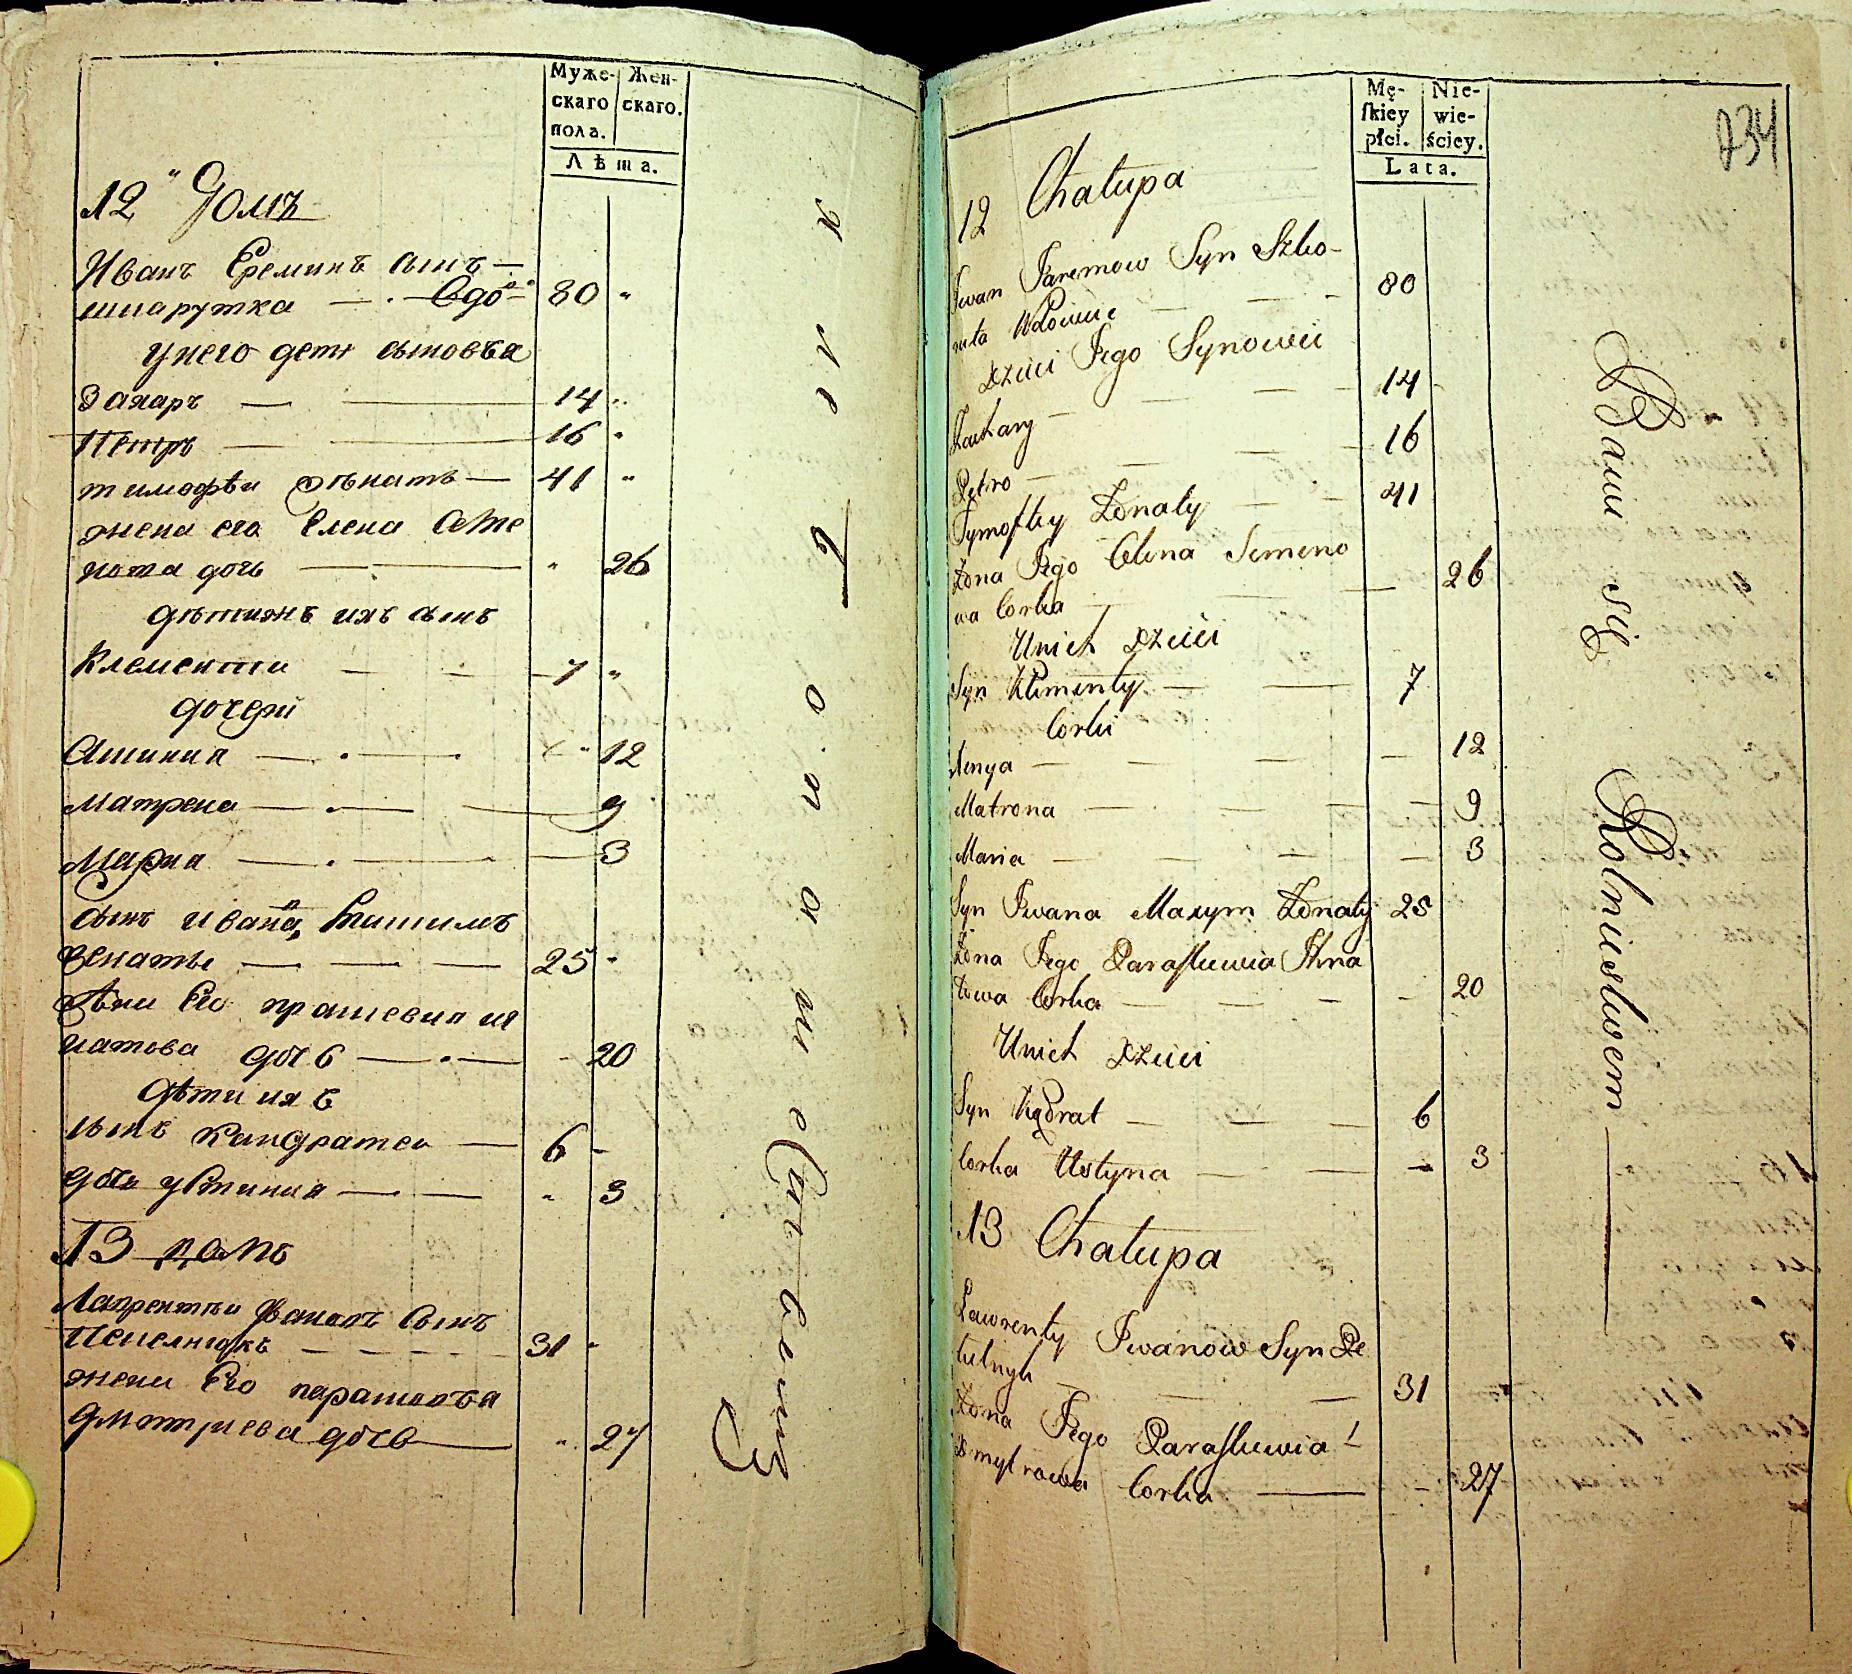 Муже-
скаго
пола.
Жен-
скаго.
Лѣта.
12 Домъ
Иванъ Ереминъ сынъ —
шпарутка — . — Вдо 80 "
у него дети сыновья
Захаръ — — 14 "
Петръ — — 16 "
тимофѣи — 41 "
жена его Елена Семе
нова дочь — " 26
дѣти ихъ сынъ
Клементи — 7 "
дочери
— . — 12
Матрена — . — 9
Мария — . — 3
сынъ Ивана
— 25 "
Его
натова дочь — . — 20
Дѣти ихъ
сынъ Кандратеи — 6 -
дочь устиния — " 3
13 домъ
Лаврентии Ивановъ Сынъ
— 31 "
жена Его парасковья
Дмитриева дочь — " 27
734
Mę-
ſkiey
płci.
Nie-
wie-
ściey.
Lata.
12 Chałupa
Iwan Jaremow Syn Szło-
ruta Wdowiec — 80
Dzieci Jego Synowie
Zachary — 14
Petro — 16
Tymoftey Żonaty — 41
Żona Jego Elena Semeno
wa Corka — 26
U nich Dzieci
Syn Klimenty — 7
Corki
— 12
Matrona — 9
Maria — 3
Syn Iwana Maxym Żonaty 25
Żona Jego Paraſkiewia Ihna
towa Corka — 20
U nich Dzieci
Syn Kądrat — 6
Corka Ustyna — 3
13 Chałupa
Ławrenty Iwanow Syn Pe
— 31
Żona Jego Paraſkiewia
Dmytrowa Corka — 27
Bawi się Rolnictwem —